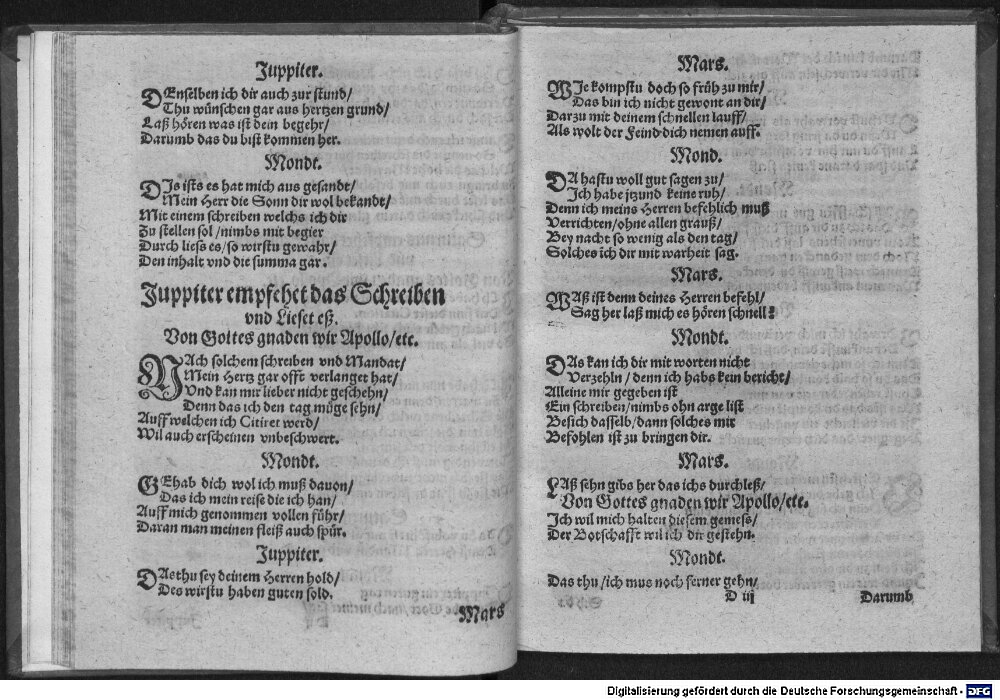 Juppiter.
DEnselben ich dir auch zur stund/
Thu wünschen gar aus hertzen grund/
Laß hören was ist dein begehr/
Darumb das du bist kommen her.
Mondt.
DIs ists es hat mich aus gesandt/
Mein Herr die Sonn dir wol bekandt/
Mit einem schreiben welchs ich dir
Zu stellen sol/nimbs mit begier
Durch liese es/so wirstu gewahr/
Den inhalt vnd die summa gar.
Juppiter empfehet das Schreiben
vnd Lieset eß.
Von Gottes gnaden wir Apollo/etc.
NAch solchem schreiben vnd Mandat/
Mein Hertz gar offt verlanget hat/
Vnd kan mir lieber nicht geschehn/
Denn das ich den tag müge sehn/
Auff welchen ich Citiret werd/
Wil auch erscheinen vnbeschwert.
Mondt.
GEhab dich wol ich muß dauon/
Das ich mein reise die ich han/
Auff mich genommen vollen führ/
Daran man meinen fleiß auch spür.
Juppiter.
DAs thu sey deinem Herren hold/
Des wirstu haben guten sold.
Mars
Mars.
WIe kompstu doch so früh zu mir/
Das bin ich nicht gewont an dir/
Darzu mit deinem schnellen lauff/
Als wolt der Feind dich nemen auff.
Mond.
DA hastu woll gut sagen zu/
Ich habe jtzund keine ruh/
Denn ich meins Herren befehlich muß
Verrichten/ohne allen grauß/
Bey nacht so wenig als den tag/
Solches ich dir mit warheit sag.
Mars.
WAß ist denn deines Herren befehl/
Sag her laß mich es hören schnell?
Mondt.
DAs kan ich dir mit worten nicht
Verzehln/denn ich habs kein bericht/
Alleine mir gegeben ist
Ein schreiben/nimbs ohn arge list
Besich dasselb/dann solches mir
Befohlen ist zu bringen dir.
Mars.
LAß sehn gibs her das ichs durchleß/
Von Gottes gnaden wir Apollo/etc.
Ich wil mich halten diesem gemess/
Der Botschafft wil ich dir gestehn.
Mondt.
Das thu/ich mus noch ferner gehn/
D iij
Darumb
Digitalisierung gefördert durch die Deutsche Forschungsgemeinschaft - DFG